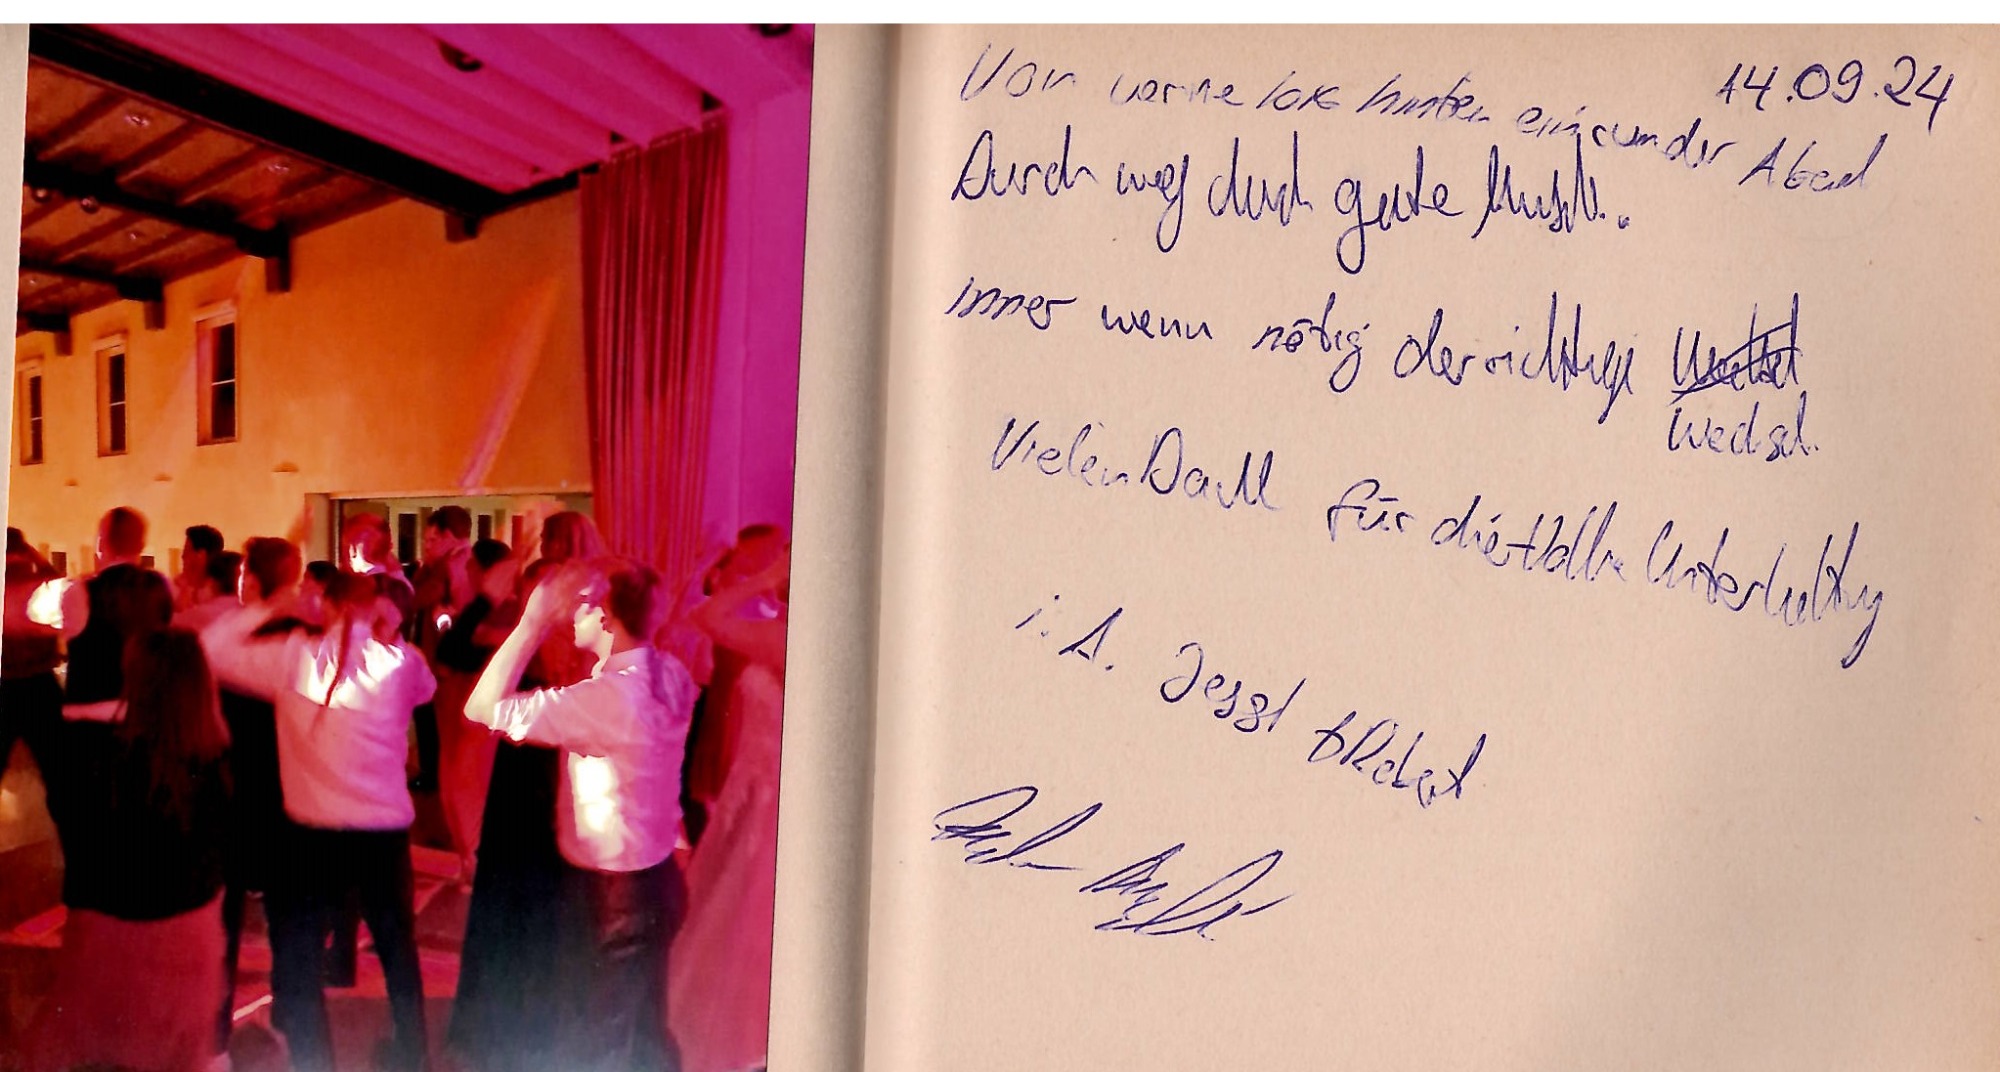 14.09.24
Von vorne bis hinten ein runder Abend
Durch weg durch gute Musik.
immer wenn nötig der richtige
Wechsel.
Vielen Dank für die tolle Unterhaltung
i. A. Jessi + Robert